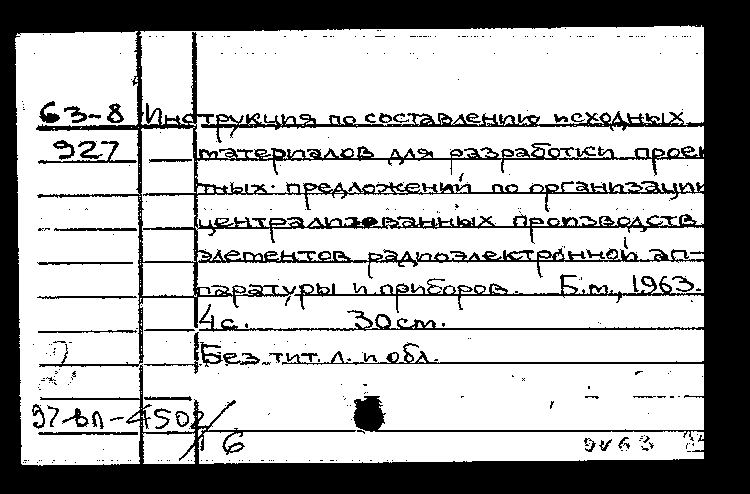 63-8 Инструкция по составлению исходных
927 материалов для разработки проек
тных предложений по организации
централизованных производств
элементов радиоэлектронной ап-
паратуры и приборов. Б.м., 1963.
4с. 30см.
Без тит. л. и обл.
2.
97-вл-4502
/16